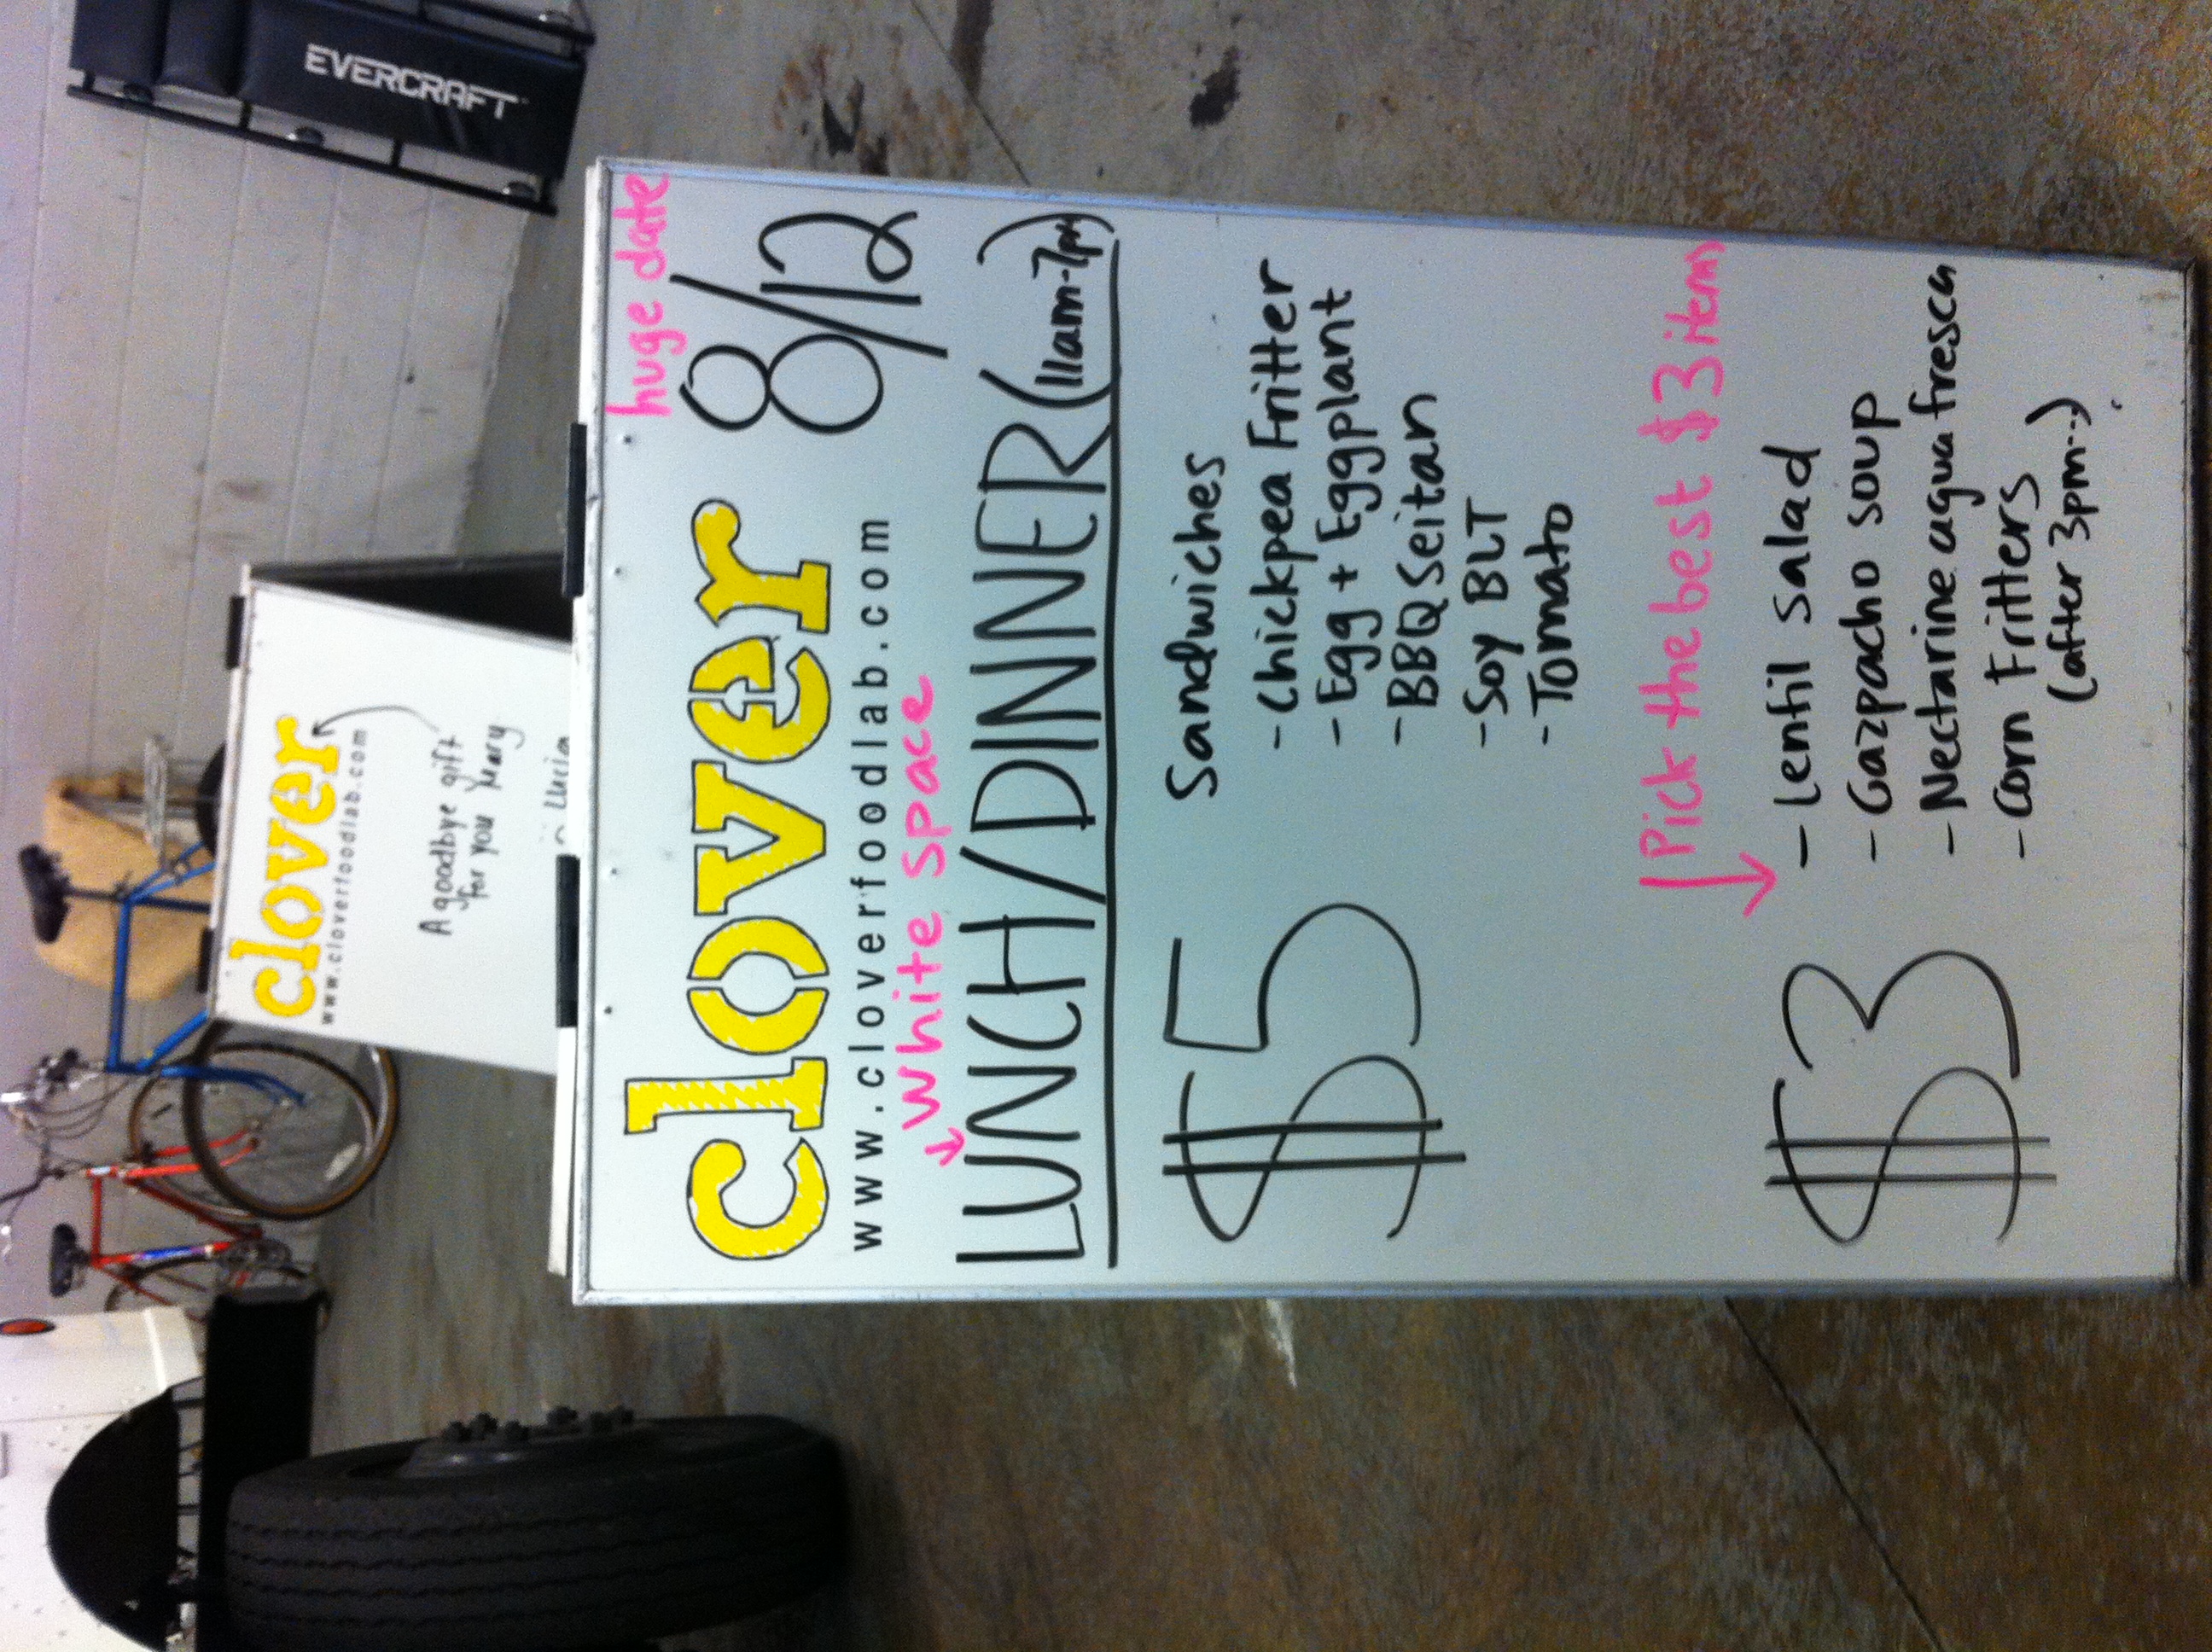 huge date
clover 8/12
www.cloverfoodlab.com
white space
LUNCH/DINNER (11am-7pm)
$5
Sandwiches
- Chickpea Fritter
- Egg + Eggplant
- BBQ Seitan
- Soy BLT
- Tomato
Pick the best $3 items
$3
- Lentil salad
- Gazpacho soup
- Nectarine agua fresca
- Corn Fritters
(after 3pm--)
clover
www.cloverfoodlab.com
A goodbye gift
for you
Lucia
EVERCRAFT